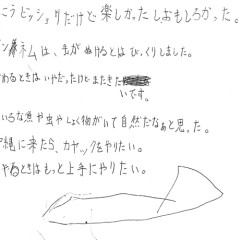 こうビッショリだけど楽しかったしおもしろかった。
は、手がぬけるとはびっくりしました。
めるときはいやだったけどまたきた
いです。
いろな魚や虫やしょく物がいて自然だなぁと思った。
縄に来たら、カヤックをやりたい。
やるときはもっと上手にやりたい。